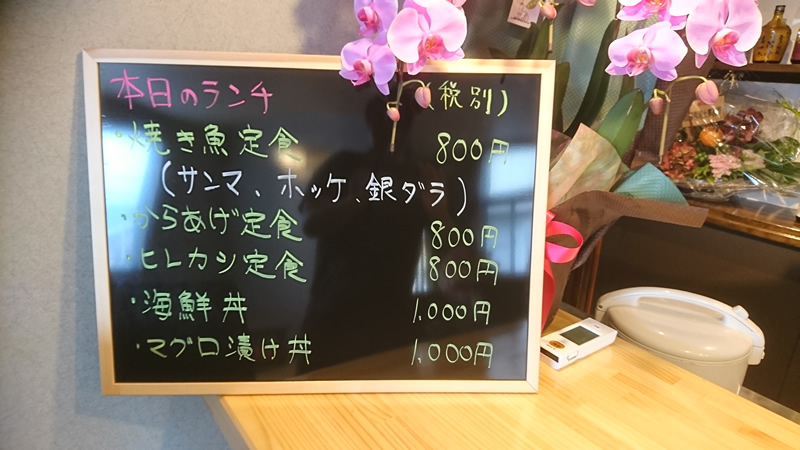 本日のランチ (税別)
・焼き魚定食 800円
(サンマ、ホッケ、銀ダラ)
・からあげ定食 800円
・ヒレカツ定食 800円
・海鮮丼 1,000円
・マグロ漬け丼 1,000円